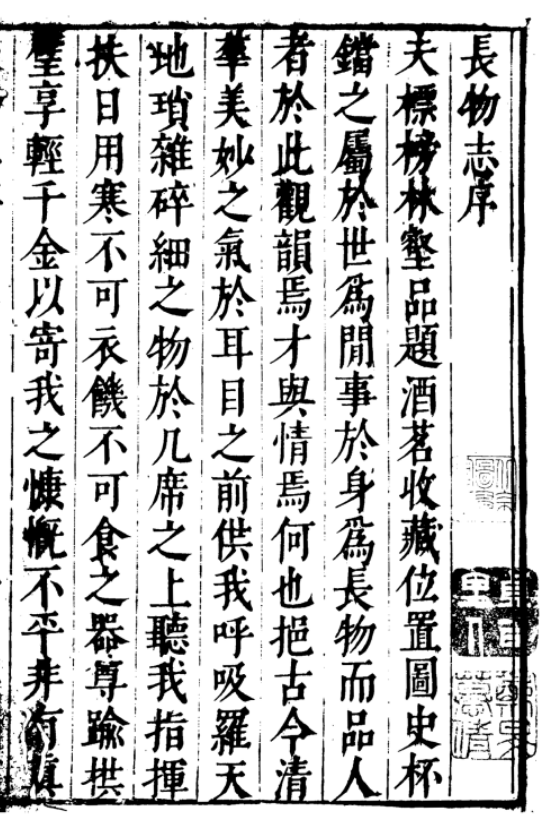 長物志序
夫標榜林壑品題酒茗收藏位置圖史杯
鐺之屬於世爲閒事於身爲長物而品人
者於此觀韻焉才與情焉何也挹古今清
華美妙之氣於耳目之前供我呼吸羅天
地瑣雜碎細之物於几席之上聽我指揮
挾日用寒不可衣饑不可食之器尊踰拱
璧享輕千金以寄我之慷慨不平非有眞